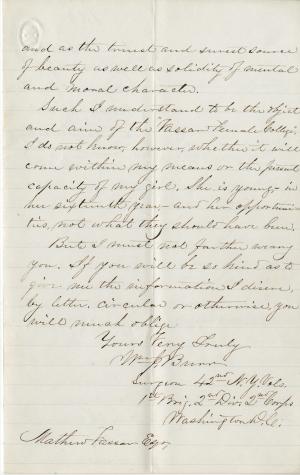 and as the truest and surest source
of beauty as well as solidity of mental
and moral character.
Such I understand to be the object
and aim of the "Vassar Female College,
I do not know, however, whether it will
come within my means or the present
capacity of my girl. She is young - in
her sixteenth year - and her opportuni-
ties, not what they should have been.
But I must not farther weary
you. If you will be so kind as to
give me the information I desire,
by letter, circular or otherwise, you
will much oblige
Yours Very Truly
Wm J Burr
Surgeon 42nd N.Y. Vols.
1st Brig. 2nd Div. 2nd Corps
Washington D.C.
Mathew Vassar Esqr,